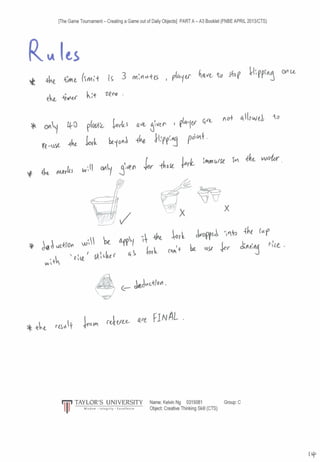 [The Game Tournament – Creating a Game out of Daily Objects] PART A – A3 Booklet (FNBE APRIL 2013/CTS)
Rules
* the time limit is 3 minutes , player have to stop flipping once
the timer hit zero .
* only 40 plastic forks are given , player are not allowed to
re-use the fork beyond the flipping point .
* the marks will only given for those fork immurse in the water .
✓ X X
* deduction will be apply if the fork dropped into the cup
with 'rice' sticker as fork can't be use for dining rice .
← deduction .
* the result from referee are FINAL .
TAYLOR'S UNIVERSITY
Wisdom · Integrity · Excellence
Name: Kelvin Ng 0315081 Group: C
Object: Creative Thinking Skill (CTS)
14